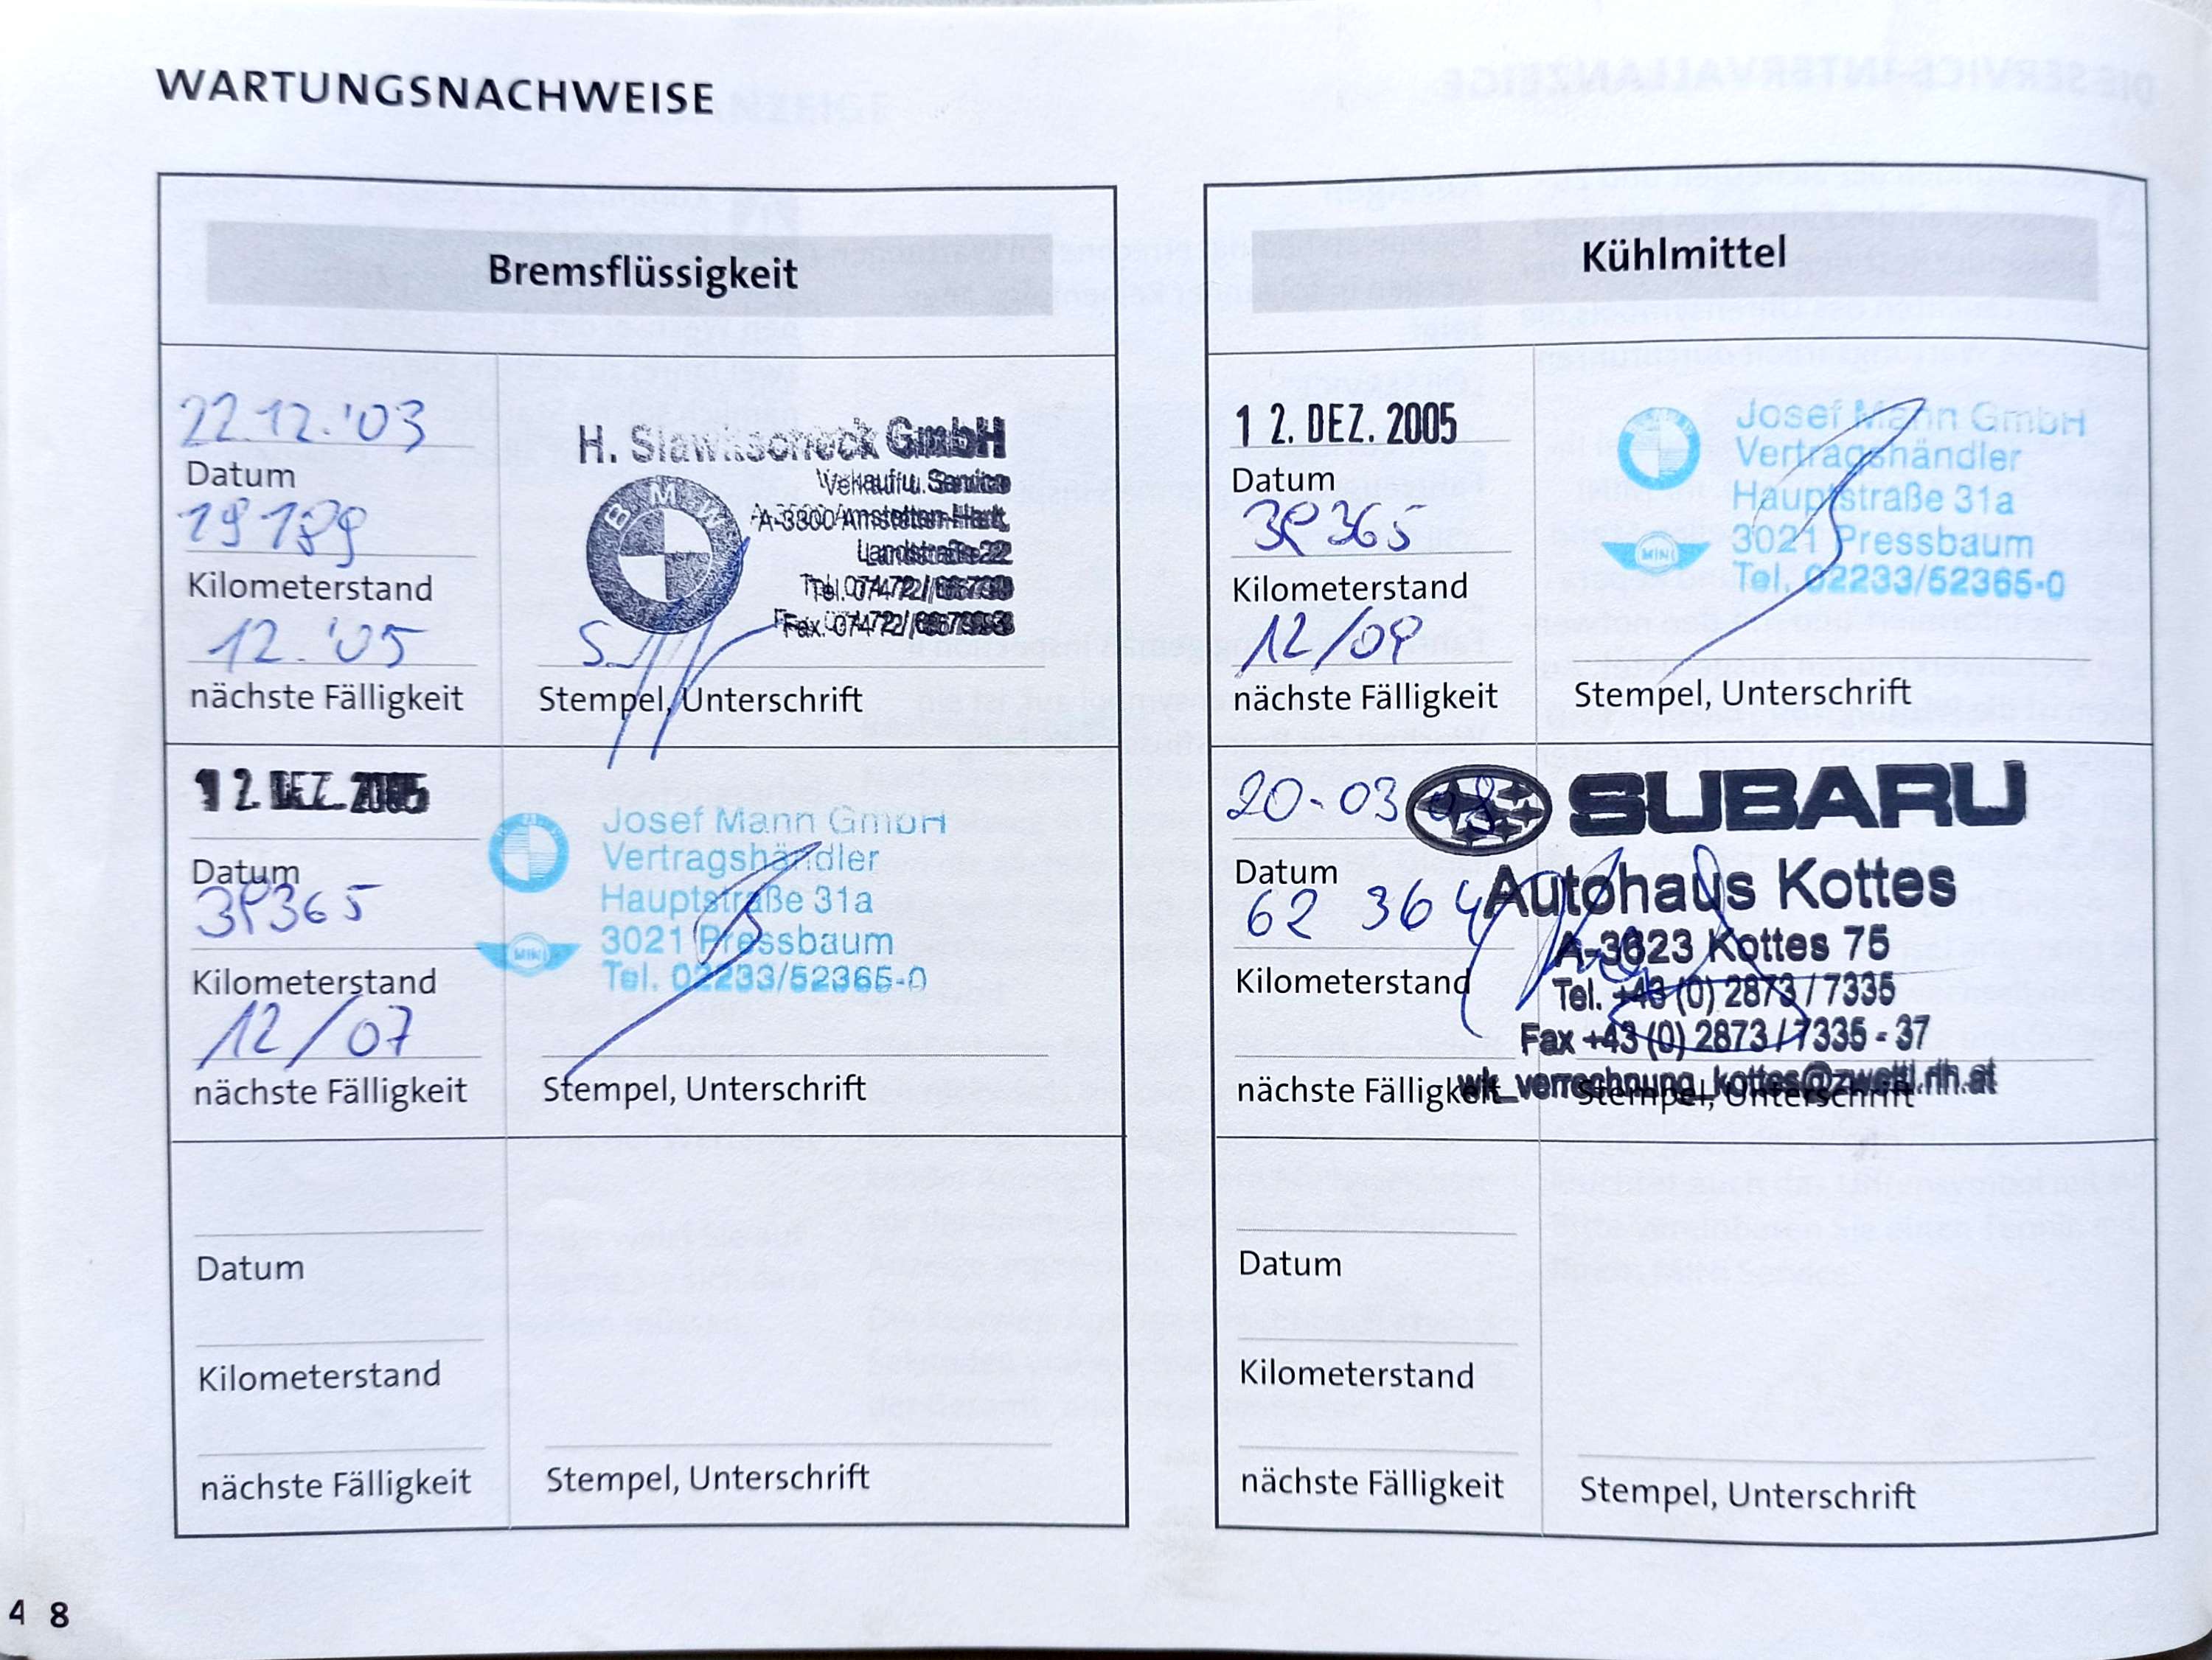 WARTUNGSNACHWEISE
Bremsflüssigkeit
22.12.'03
Datum
19189
Kilometerstand
12.'05
nächste Fälligkeit
H. Slawitscheck GmbH
BMW
Verkauf u. Service
A-3300 Amstetten-Hart
Landstraße 22
Tel. 07472/
Fax. 07472/
Stempel, Unterschrift
12. DEZ. 2005
Datum
38365
Kilometerstand
12/07
nächste Fälligkeit
Josef Mann GmbH
Vertragshändler
Hauptstraße 31a
3021 Pressbaum
MINI
Tel. 02233/52365-0
Stempel, Unterschrift
Datum
Kilometerstand
nächste Fälligkeit
Stempel, Unterschrift
Kühlmittel
12. DEZ. 2005
Datum
38365
Kilometerstand
12/09
nächste Fälligkeit
Josef Mann GmbH
Vertragshändler
Hauptstraße 31a
3021 Pressbaum
MINI
Tel. 02233/52365-0
Stempel, Unterschrift
20-03 08
Datum
62 364
Kilometerstand
nächste Fälligkeit
SUBARU
Autohaus Kottes
A-3623 Kottes 75
Tel. +43 (0) 2873 / 7335
Fax +43 (0) 2873 / 7335 - 37
wk_verrechnung_kottes@zwettl.rlh.at
Stempel, Unterschrift
Datum
Kilometerstand
nächste Fälligkeit
Stempel, Unterschrift
48